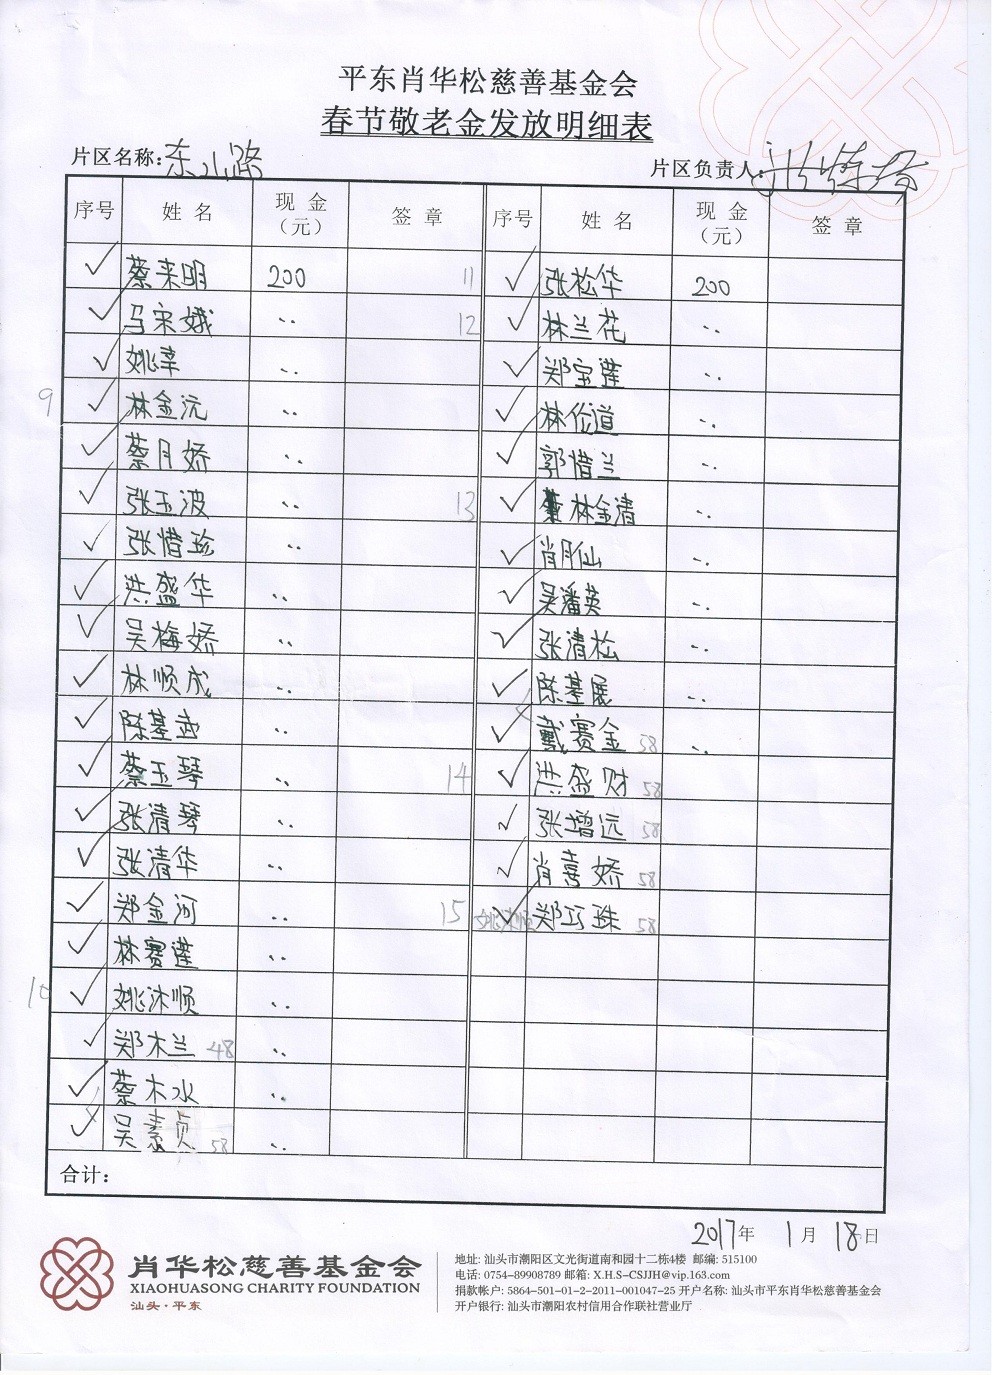 平东肖华松慈善基金会
春节敬老金发放明细表
片区名称:东山路 片区负责人:
序号 姓名 现金（元） 签章 序号 姓名 现金（元） 签章
蔡来明 200 11 张松华 200
马宋娥 〃 12 林兰花 〃
姚幸 〃 郑宝莲 〃
9 林金沅 〃 林俭道 〃
蔡月娇 〃 郭惜兰 〃
张玉波 〃 13 林金清 〃
张惜珍 〃 肖月仙 〃
洪盛华 〃 吴潘英 〃
吴梅娇 〃 张清松 〃
林顺成 〃 陈基展 〃
陈基 〃 戴赛金 58 〃
蔡玉琴 〃 14 洪盛财 58
张清琴 〃 张增远 58
张清华 〃 肖喜娇 58
郑金河 〃 15 姚沐顺 郑巧珠 58
林赛莲 〃
10 姚沐顺 〃
郑木兰 48 〃
蔡木水 〃
吴素贞 58 〃
合计:
2017年 1月 18日
肖华松慈善基金会
XIAOHUASONG CHARITY FOUNDATION
汕头·平东
地址: 汕头市潮阳区文光街道南和园十二栋4楼 邮编: 515100
电话: 0754-89908789 邮箱: X.H.S-CSJJH@vip.163.com
捐款帐户: 5864-501-01-2-2011-001047-25 开户名称: 汕头市平东肖华松慈善基金会
开户银行: 汕头市潮阳农村信用合作联社营业厅